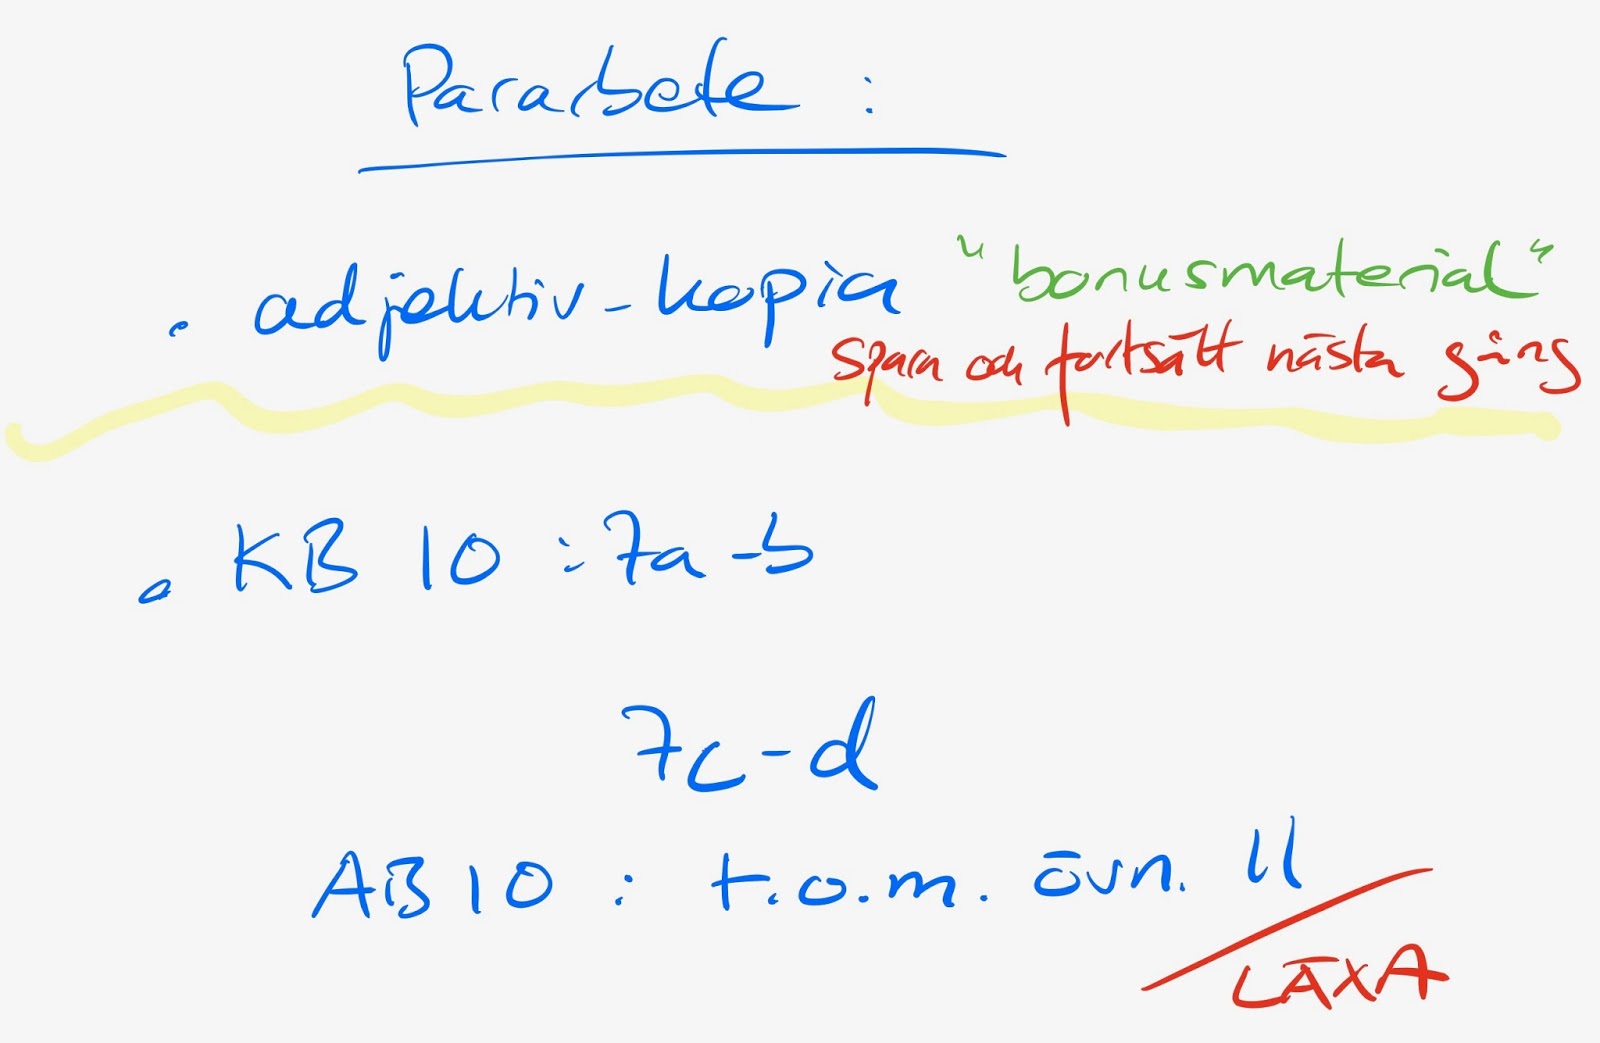 Pararbete :
. adjektiv-kopia "bonusmaterial"
Spara och fortsätt nästa gång
. KB 10 : 7a-b
7c-d
AB 10 : t.o.m. övn. 11
LÄXA